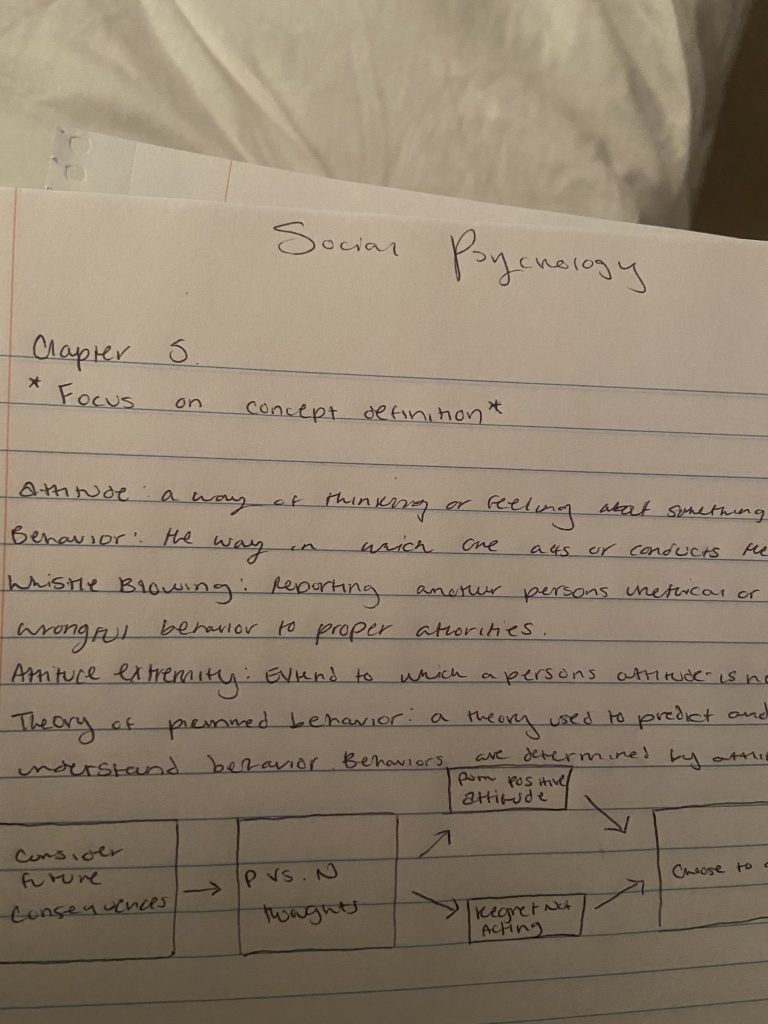 Social Psychology
Chapter 5.
* Focus on concept definition *
Attitude: a way of thinking or feeling about something
Behavior: the way in which one acts or conducts the
Whistle Blowing: Reporting another persons unethical or
wrongful behavior to proper athorities.
Attitude extremity: Extend to which a persons attitude is no
Theory of planned behavior: a theory used to predict and
understand behavior. Behaviors are determined by attit
Form positive
attitude
Consider
future
consequences
P vs. N
thoughts
Regret Not
Acting
Choose to